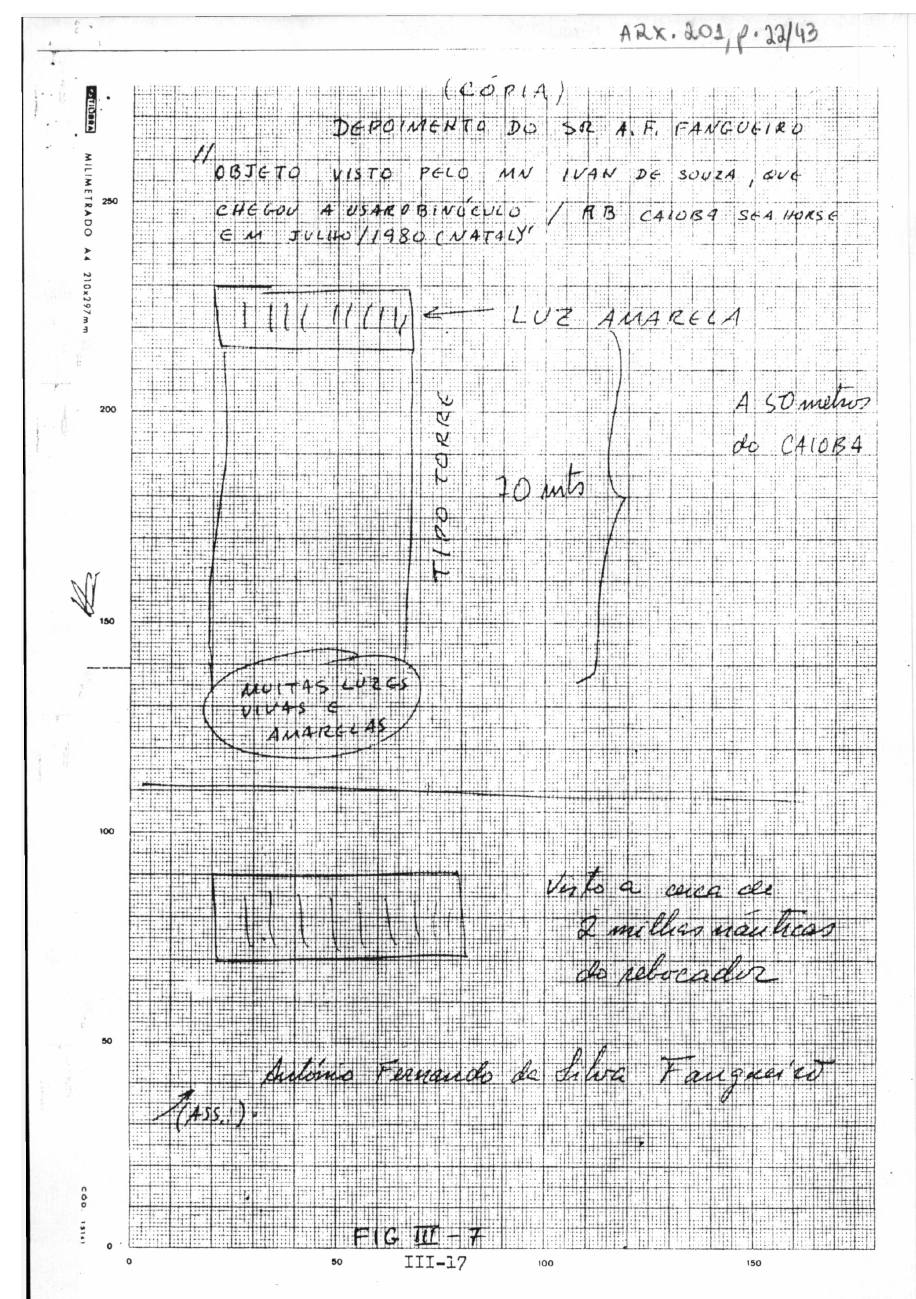 ARX. 201, p. 22/43
(CÓPIA)
DEPOIMENTO DO SR A. F. FANGUEIRO
"OBJETO VISTO PELO MN IVAN DE SOUZA, QUE
CHEGOU A USAR O BINÓCULO / RB CAIOBA SEAHORSE
EM JULHO/1980 (NATAL)"
LUZ AMARELA
TIPO TORRE
70 mts
A 50 metros
do CAIOBA
MUITAS LUZES
VIVAS E
AMARELAS
Visto a cerca de
2 milhas náuticas
do rebocador
António Fernando da Silva Fangueiro
(ASS.).
FIG III - 7
III-17
MILIMETRADO A4 210x297mm
250
200
150
100
50
0
0
50
100
150